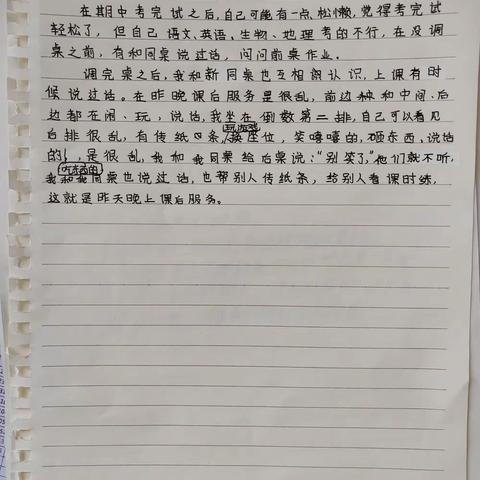 在期中考完试之后,自己可能有一点松懒,觉得考完试
轻松了,但自己语文、英语、生物、地理考的不行,在没调
桌之前,有和同桌说过话,问问前桌作业。
调完桌之后,我和新同桌也互相的认识,上课有时
候说过话。在昨晚课后服务是很乱,前边和中间、后
边都在闹、玩,说话,我坐在倒数第二排,自己可以看见
玩游戏
台排很乱,有传纸条,换座位,笑嘻嘻的,砸东西、说话
的,是很乱,我和我同桌给后桌说:“别笑了,”他们就不听,
我和我同桌也说过话,也帮别人传纸条,给别人看课时练,
这就是昨天晚上课后服务。